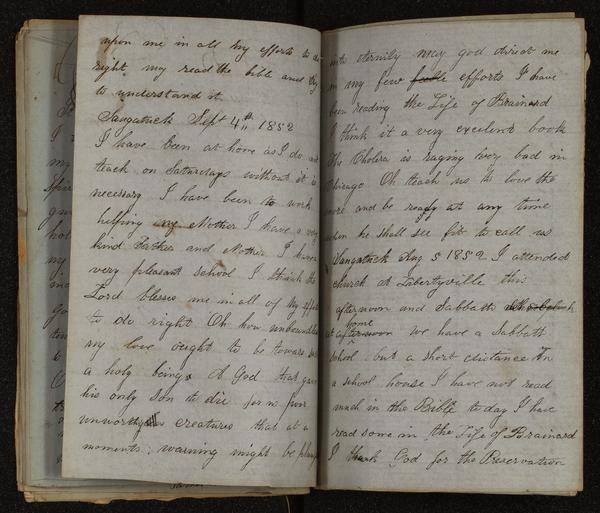 upon me in all my efforts to do
right may read the bible and try
to understand it
Saugatuck Sept 4th 1852
I have been at home as I do not
teach on Saturdays without it is
necessary I have been to work
helping my Mother I have a very
kind Father and Mother I have a
very pleasant school I think the
Lord blesses me in all of my efforts
to do right Oh how unbounded
my love ought to be towards such
a holy being A God that gave
his only Son to die for us poor
unworthy creatures that at a
moments warning might be plunged
into eternity may god direct me
in my few feeble efforts I have
been reading the Life of Brainard
I think it a very excelent book
the Cholera is raging very bad in
Chicago Oh teach us to love thee
more and be ready at any time
when he shall see fit to call us
Saugatuck Aug 5 1852 I attended
church at Libertyville this
afternoon and Sabbath
at home we have a Sabbath
school but a short distance in
a school house I have not read
much in the Bible to day I have
read some in the Life of Brainard
I thank God for the Preservation